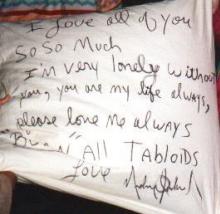 I love all of you
SO SO Much
I'm very lonely without
you, you are my life always,
please love me always
"Burn" All Tabloids
Love